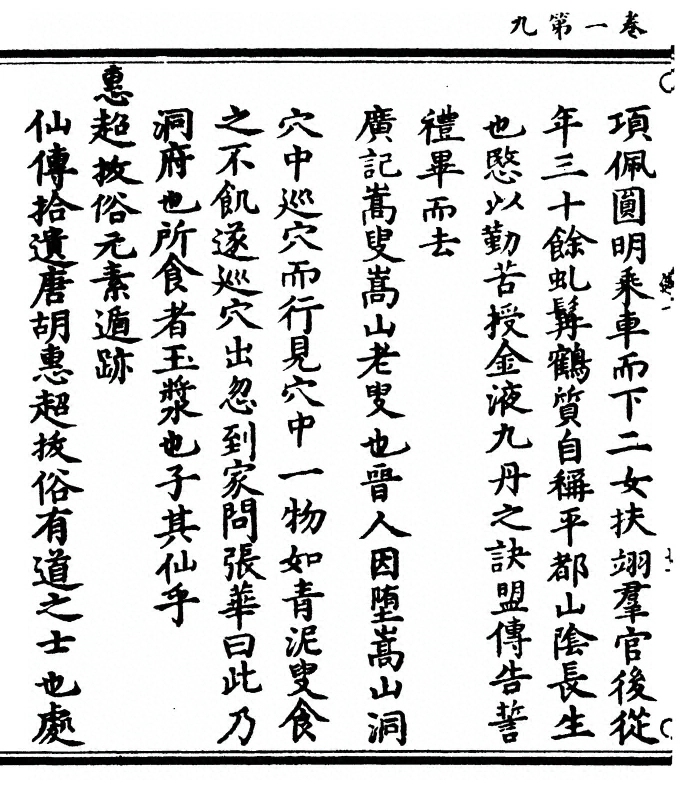 九第一卷
項佩圓明乘車而下二女扶翊羣官後從
年三十餘虬髯鶴質自稱平都山陰長生
也愍以勤苦授金液九丹之訣盟傳告誓
禮畢而去
廣記嵩叟嵩山老叟也晋人因堕嵩山洞
穴中巡穴而行見穴中一物如青泥叟食
之不飢遂巡穴出忽到家問張華曰此乃
洞府也所食者玉漿也子其仙乎
惠超拔俗元素遁跡
仙傳拾遺唐胡惠超拔俗有道之士也處